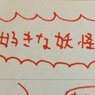 好きな妖怪